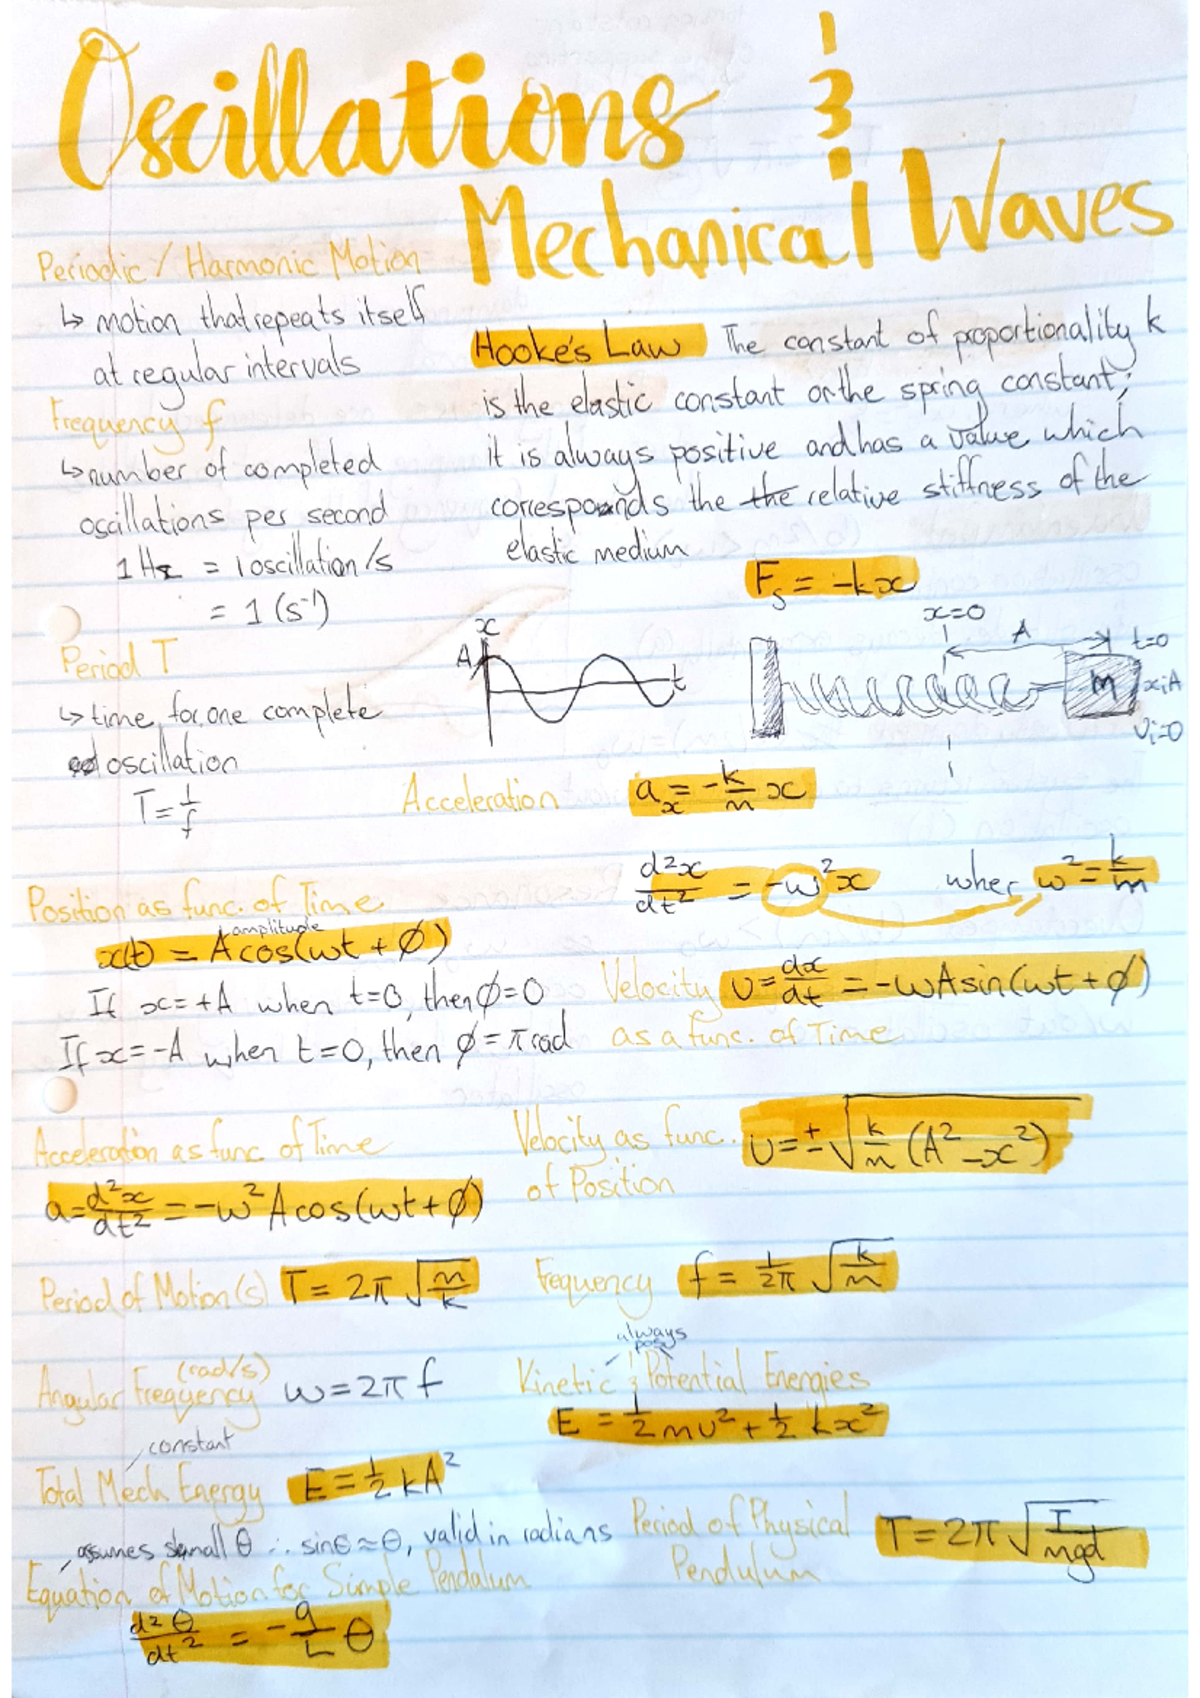 Oscillations &
Mechanical Waves
Periodic / Harmonic Motion
↳ motion that repeats itself
at regular intervals
Frequency f
↳ number of completed
oscillations per second
1 Hz = 1 oscillation /s
= 1 (s⁻¹)
Period T
↳ time for one complete
oscillation
T = 1/f
Hooke's Law The constant of proportionality k
is the elastic constant or the spring constant;
it is always positive and has a value which
corresponds the the relative stiffness of the
elastic medium
F_s = -kx
x
A
t
x=0
A
t=0
m
x_i A
v_i=0
Acceleration a_x = -k/m x
d²x/dt² = -ω²x wher ω² = k/m
Position as func. of Time
amplitude
x(t) = A cos(ωt + ϕ)
If x=+A when t=0, then ϕ=0
If x=-A when t=0, then ϕ=π rad
Velocity v = dx/dt = -ωA sin(ωt + ϕ)
as a func. of Time
Acceleration as func of Time
a = d²x/dt² = -ω² A cos(ωt + ϕ)
Velocity as func. v = ± √(k/m (A² - x²))
of Position
Period of Motion (s) T = 2π √(m/k)
Frequency f = 1/2π √(k/m)
(rad/s)
Angular Frequency ω = 2π f
always
pos
Kinetic & Potential Energies
E = ½ mv² + ½ kx²
constant
Total Mech Energy E = ½ kA²
assumes small θ ∴ sinθ ≈ θ, valid in radians
Equation of Motion for Simple Pendalum
d²θ/dt² = -g/L θ
Period of Physical
Pendulum
T = 2π √(I/mgd)